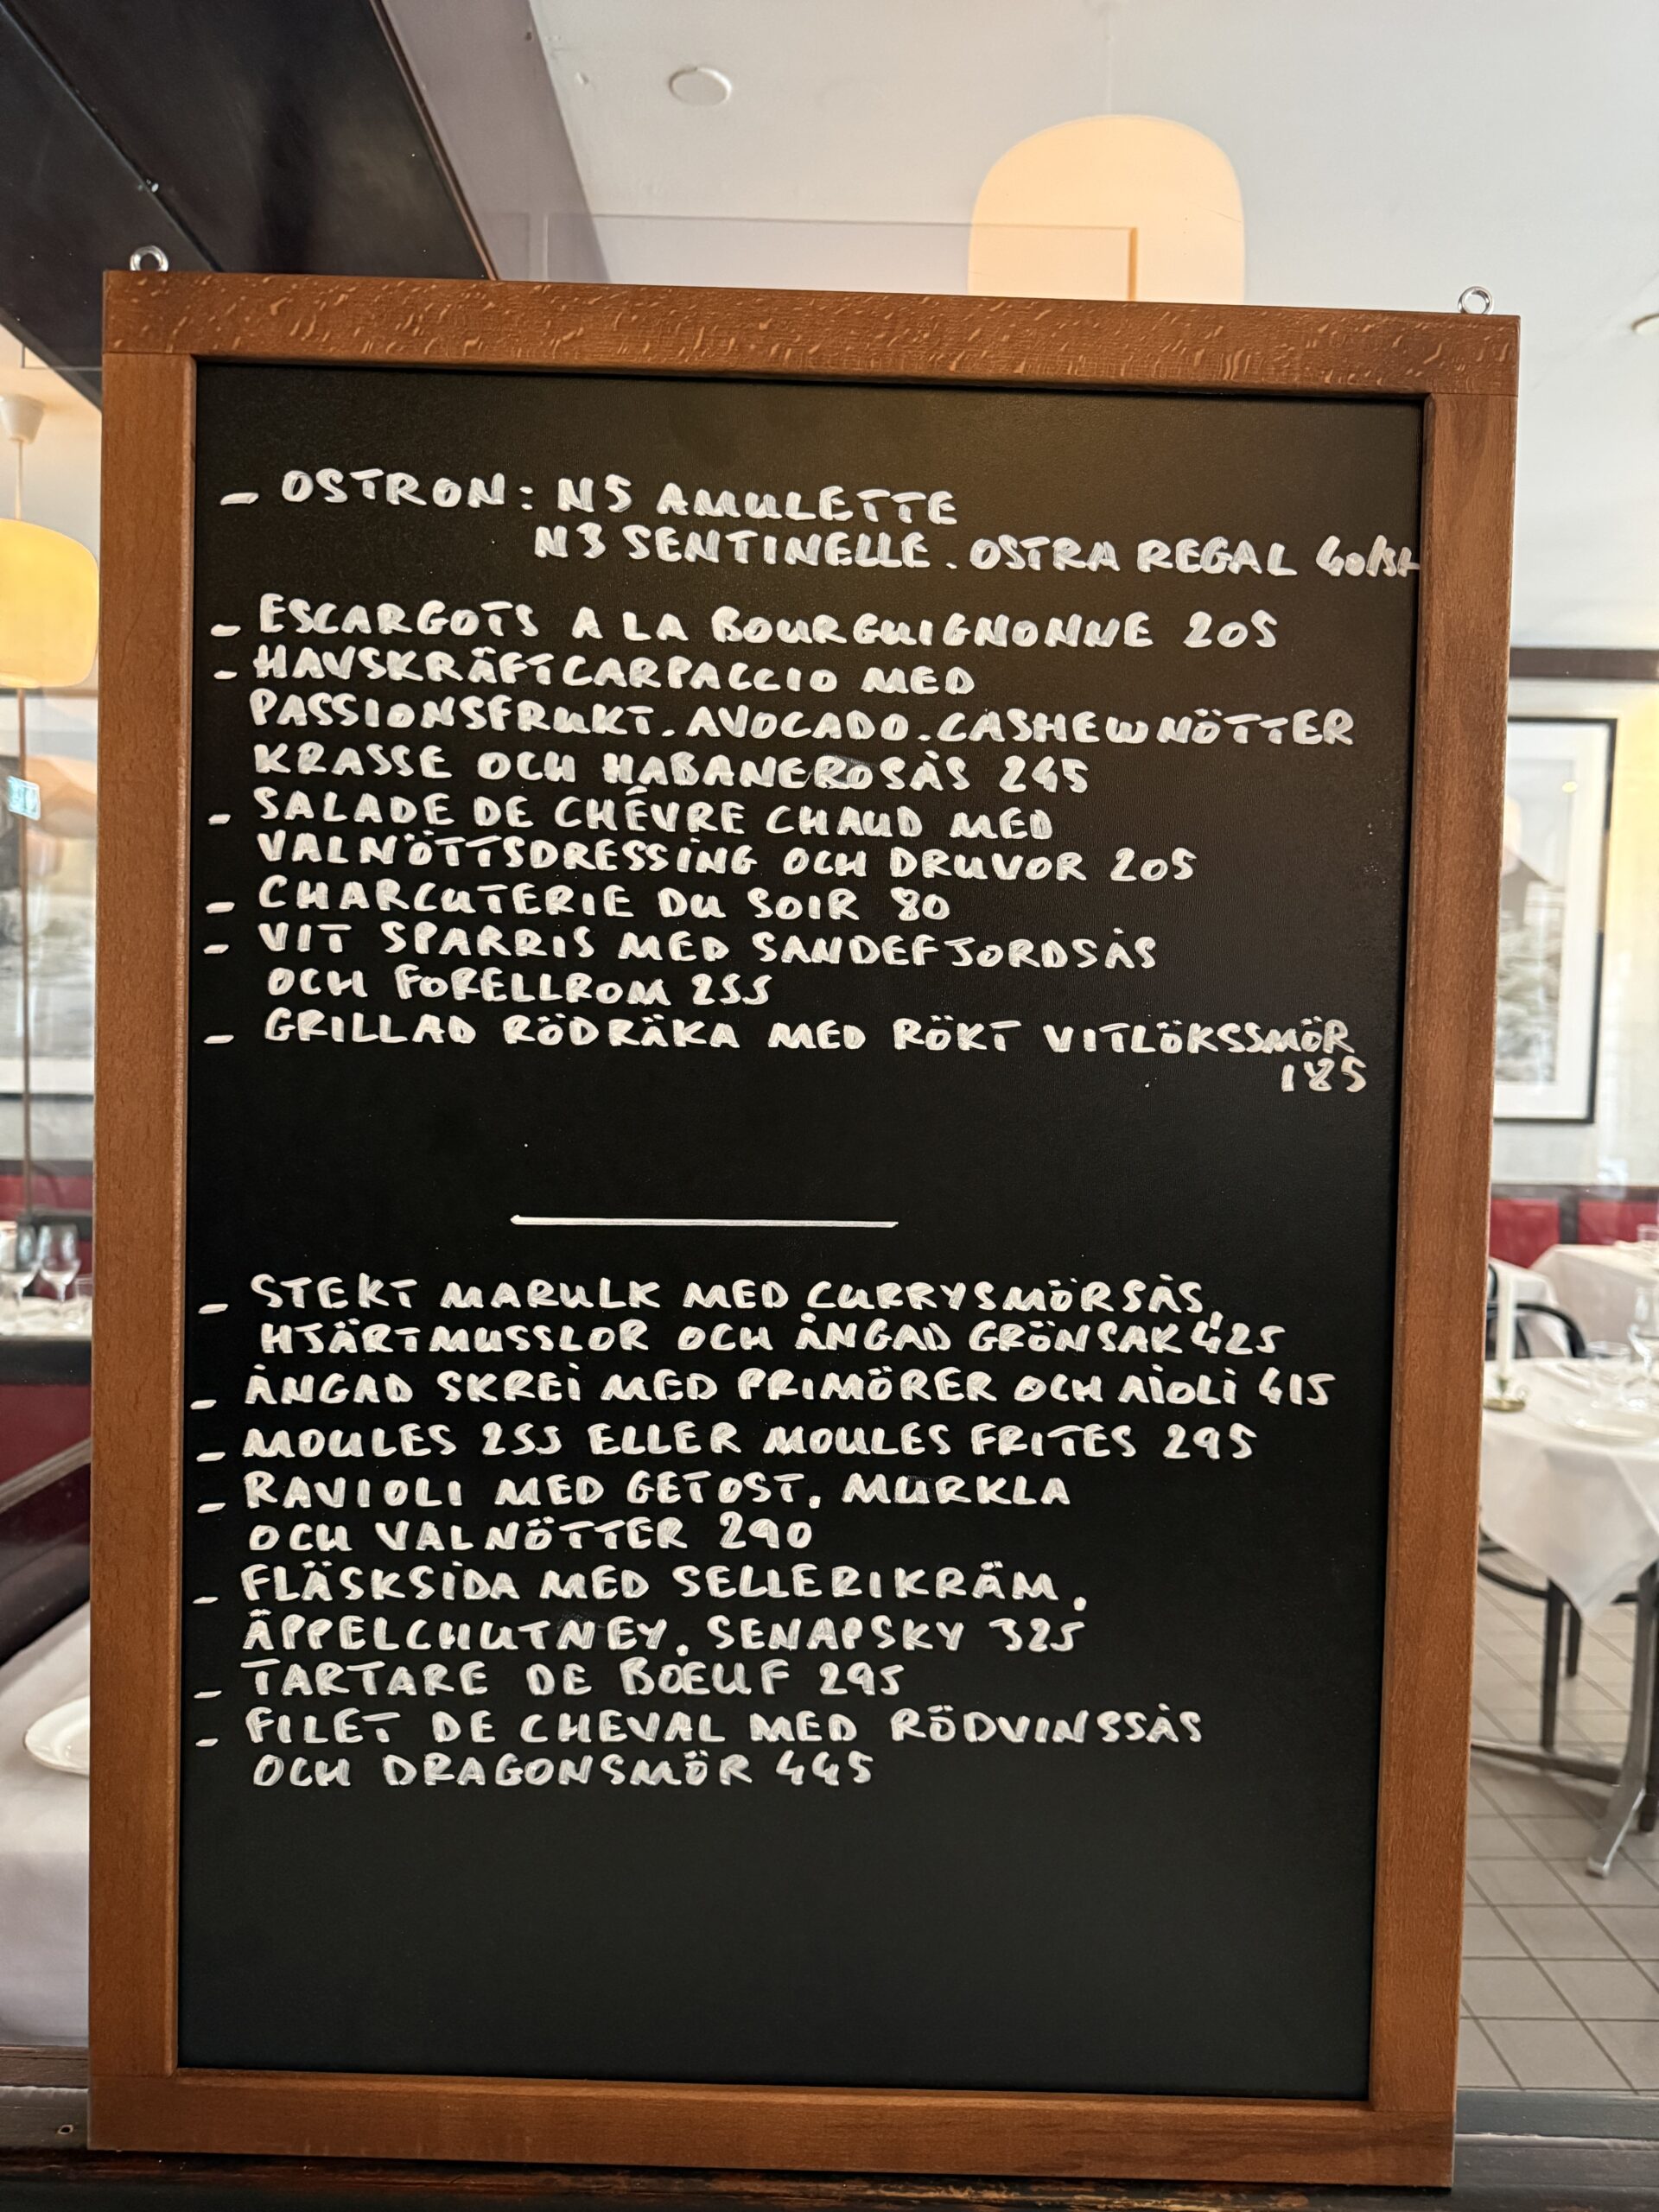 - OSTRON: N5 AMULETTE
N3 SENTINELLE. OSTRA REGAL 40/St
- ESCARGOTS A LA BOURGUIGNONNE 205
- HAVSKRÄFTCARPACCIO MED
PASSIONSFRUKT. AVOCADO. CASHEWNÖTTER
KRASSE OCH HABANEROSÅS 245
- SALADE DE CHÉVRE CHAUD MED
VALNÖTTSDRESSING OCH DRUVOR 205
- CHARCUTERIE DU SOIR 80
- VIT SPARRIS MED SANDEFJORDSÅS
OCH FORELLROM 255
- GRILLAD RÖDRÄKA MED RÖKT VITLÖKSSMÖR
185
- STEKT MARULK MED CURRYSMÖRSÅS,
HJÄRTMUSSLOR OCH ÅNGAD GRÖNSAK 425
- ÅNGAD SKREI MED PRIMÖRER OCH AIOLI 415
- MOULES 255 ELLER MOULES FRITES 295
- RAVIOLI MED GETOST, MURKLA
OCH VALNÖTTER 290
- FLÄSKSIDA MED SELLERIKRÄM.
ÄPPELCHUTNEY. SENAPSKY 325
- TARTARE DE BŒUF 295
- FILET DE CHEVAL MED RÖDVINSSÅS
OCH DRAGONSMÖR 445